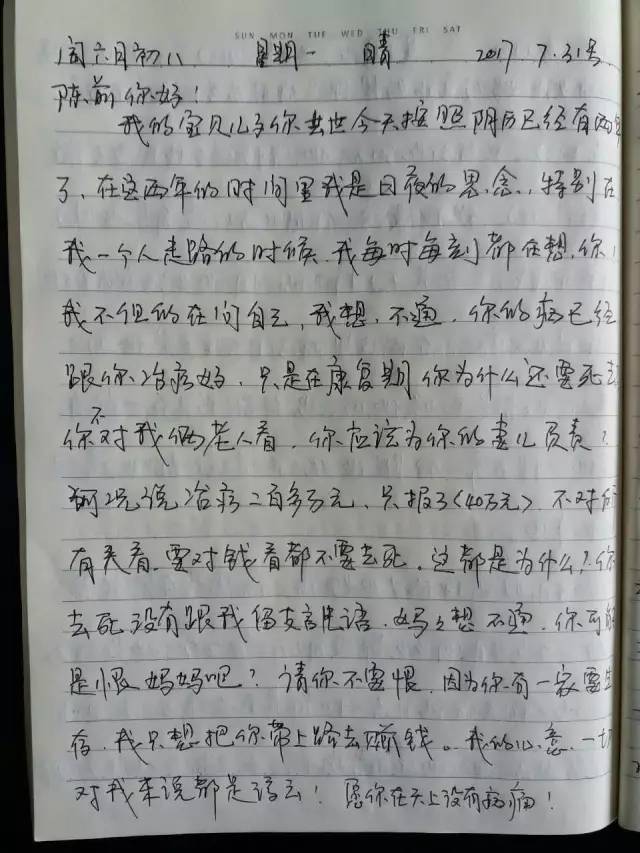 SUN MON TUE WED THU FRI SAT
润六月初八 星期一 晴 2017.7.31号
陈前你好!
我的宝贝儿子你去世今天按照阴历已经有两年
了,在这两年的时间里我是日夜的思念,特别在
我一个人走路的时候,我每时每刻都在想,你
我不但的在问自己,我想,不通,你的病已经
跟你治疗好,只是在康复期你为什么还要死去
你不对我俩老人看,你应该为你的妻儿负责?
何况说治病二百多万元,只报了(40万元)不对
有关看,要对钱看都不要去死,这都是为什么?你
去死没有跟我留支言片语,妈妈想不通,你可能
是恨妈妈吧?请你不要恨,因为你有一家要生
存,我只想把你带上路去赚钱。我的心意,一切
对我来说都是该去!愿你在天上没有病痛!